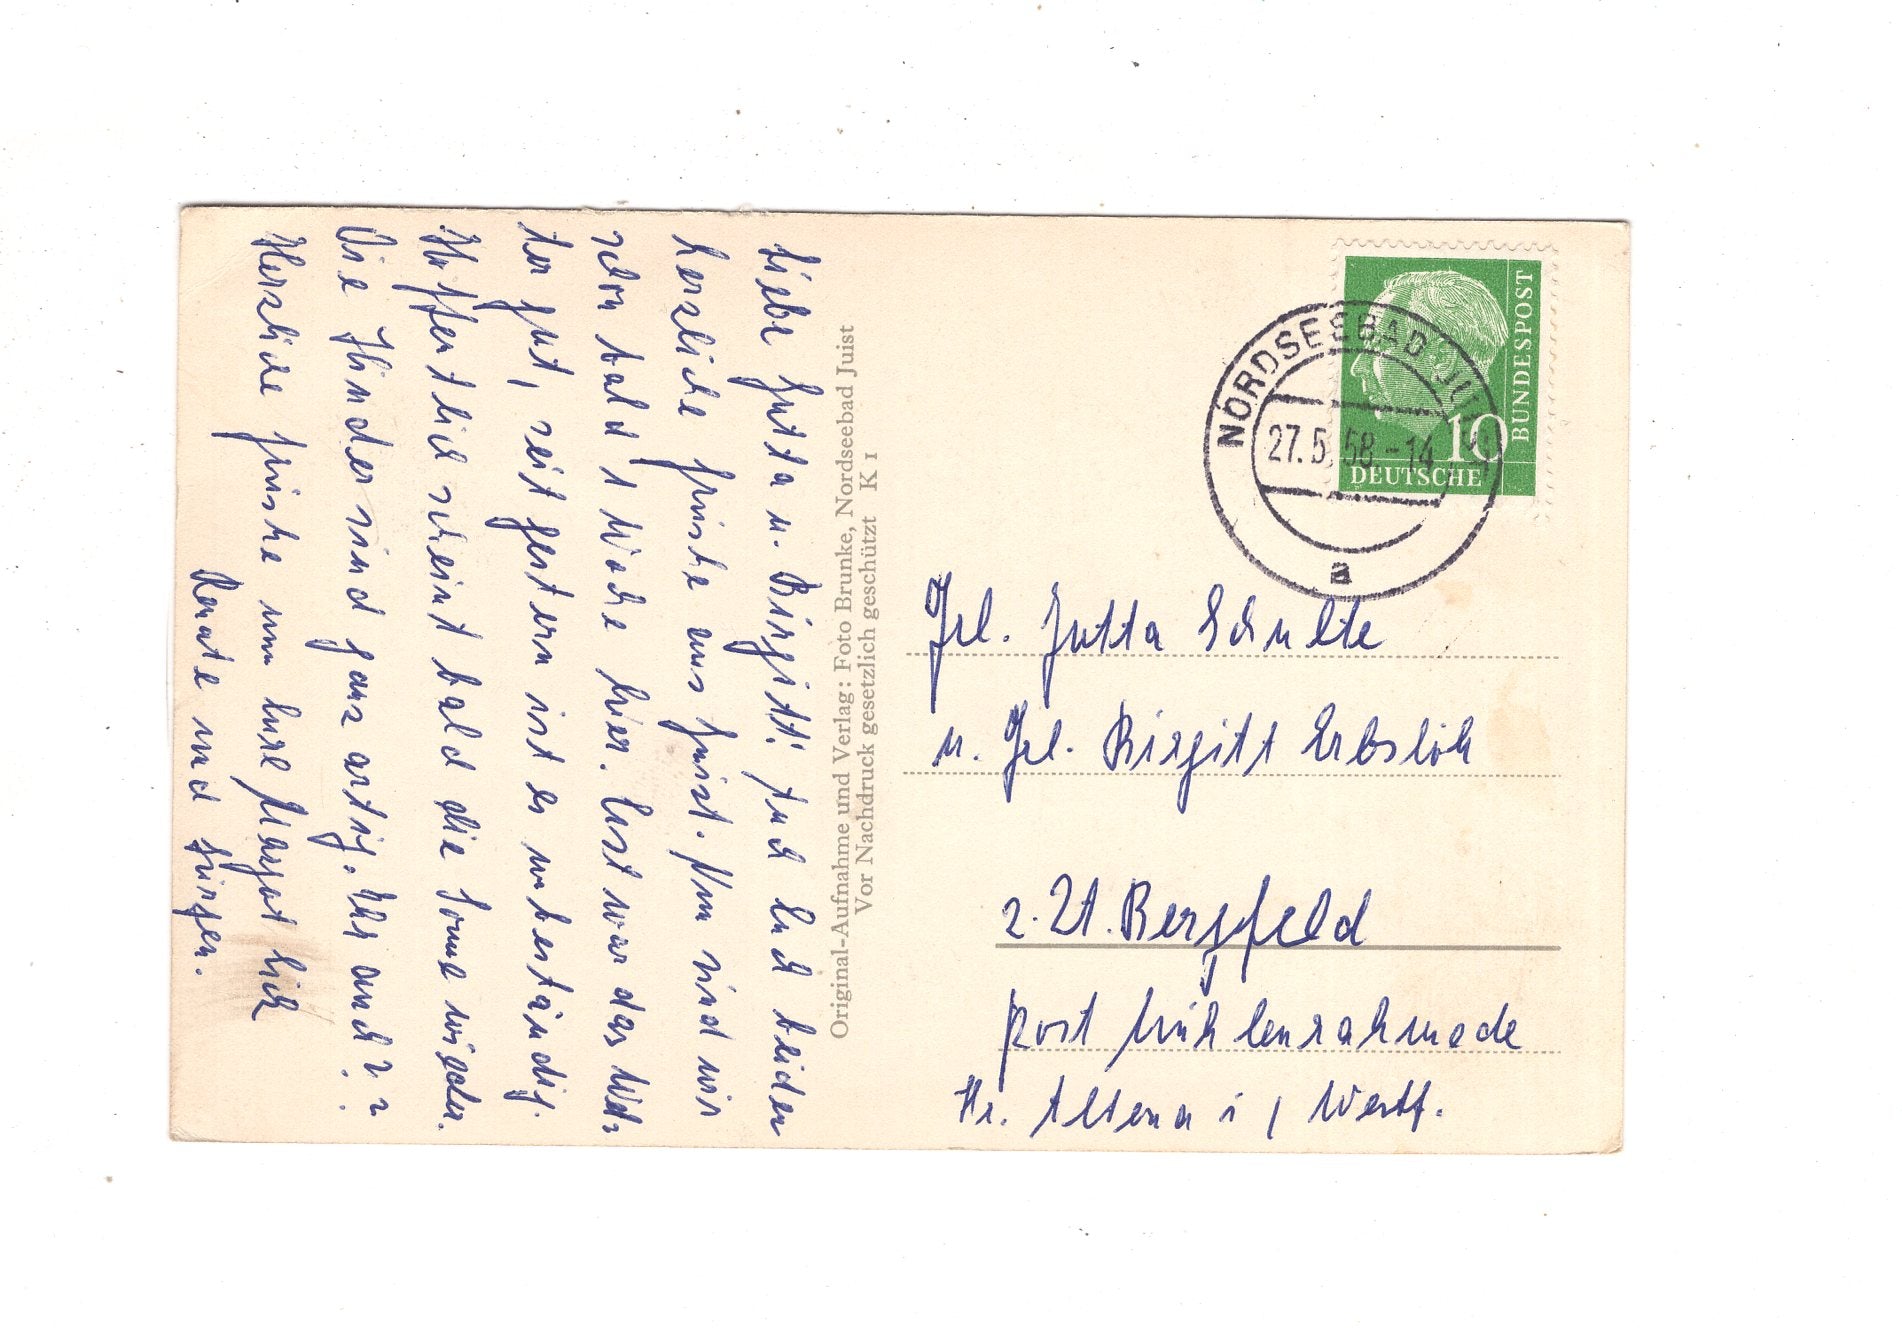 Liebe Jutta u. Birgitt! Euch beiden
herzliche Grüße aus Juist. Nun sind wir
schon bald 1 Woche hier. Erst war das Wet-
ter gut, seit gestern ist es unbeständig.
Hoffentlich scheint bald die Sonne wieder.
Die Kinder sind ganz artig. Ihr auch??
Herzliche Grüße von Eure Margot
Renate und
Original-Aufnahme und Verlag: Foto Brunke, Nordseebad Juist
Vor Nachdruck gesetzlich geschützt K 1
NORDSEEBAD JUIST
27.5.58.-14
a
10
DEUTSCHE
BUNDESPOST
Frl. Jutta Schulte
u. Frl. Birgitt Erbslöh
z. Zt. Bergfeld
Post Mühlenrahmede
Kr. Altena i/Westf.